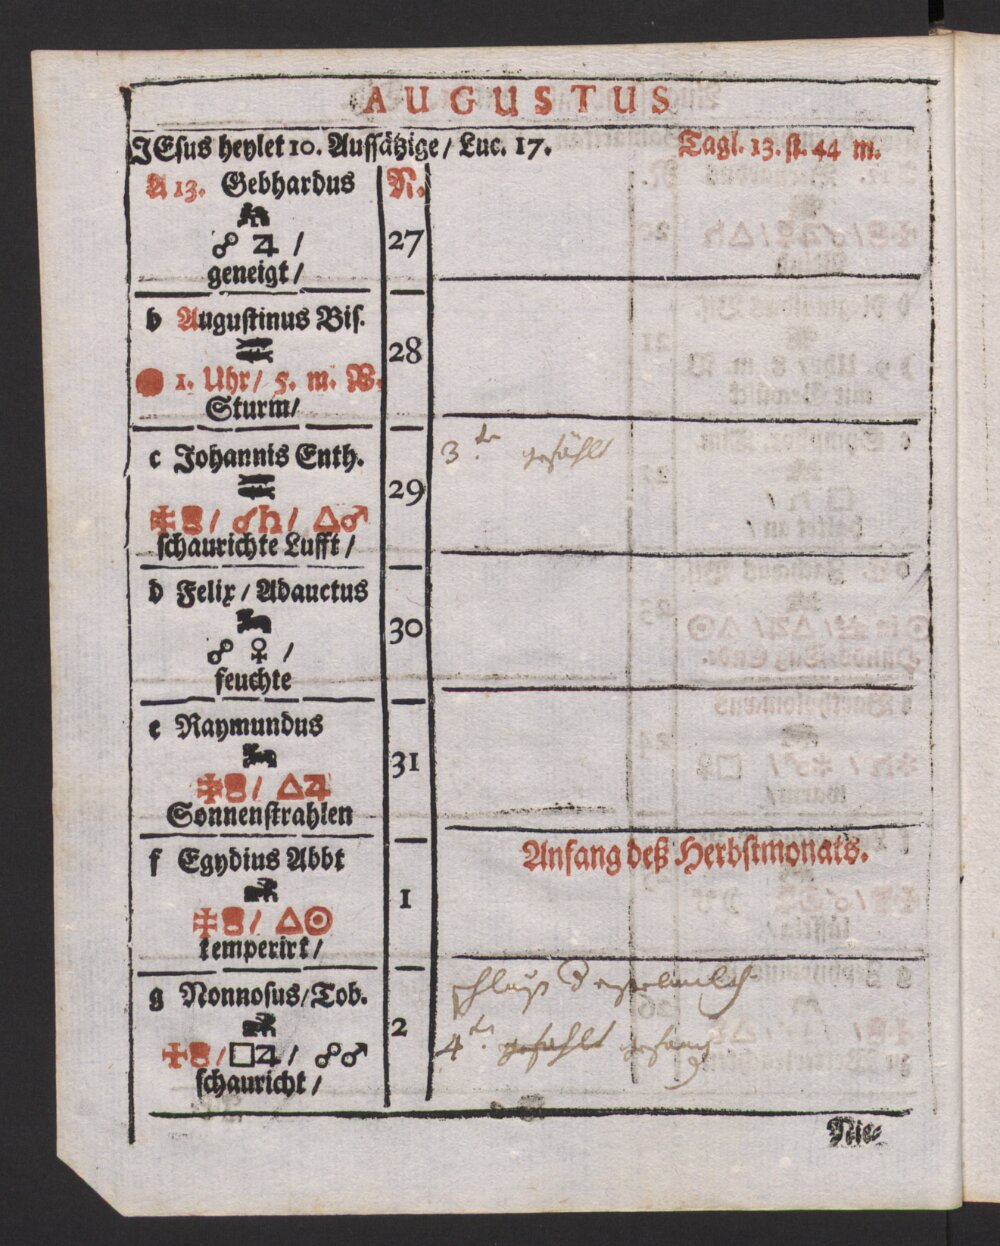 AUGUSTUS
JEsus heylet 10. Aussätzige / Luc. 17. Tagl. 13. st. 44 m.
A 13. Gebhardus N.
☍ ♃ / 27
geneigt /
b Augustinus Bis.
28
● 1. Uhr / 5. m. W.
Sturm /
c Johannis Enth. 3.te gefählt
29
/ ☌♄ / △♂
schaurichte Lufft /
d Felix / Adauctus
30
☍ ♀ /
feuchte
e Raymundus
31
/ △♃
Sonnenstrahlen
Anfang deß Herbstmonats.
f Egydius Abbt
1
/ △☉
temperirt /
g Nonnosus / Tob.
2
4.te gefählt
/ □♃ / ☍♂
schauricht /